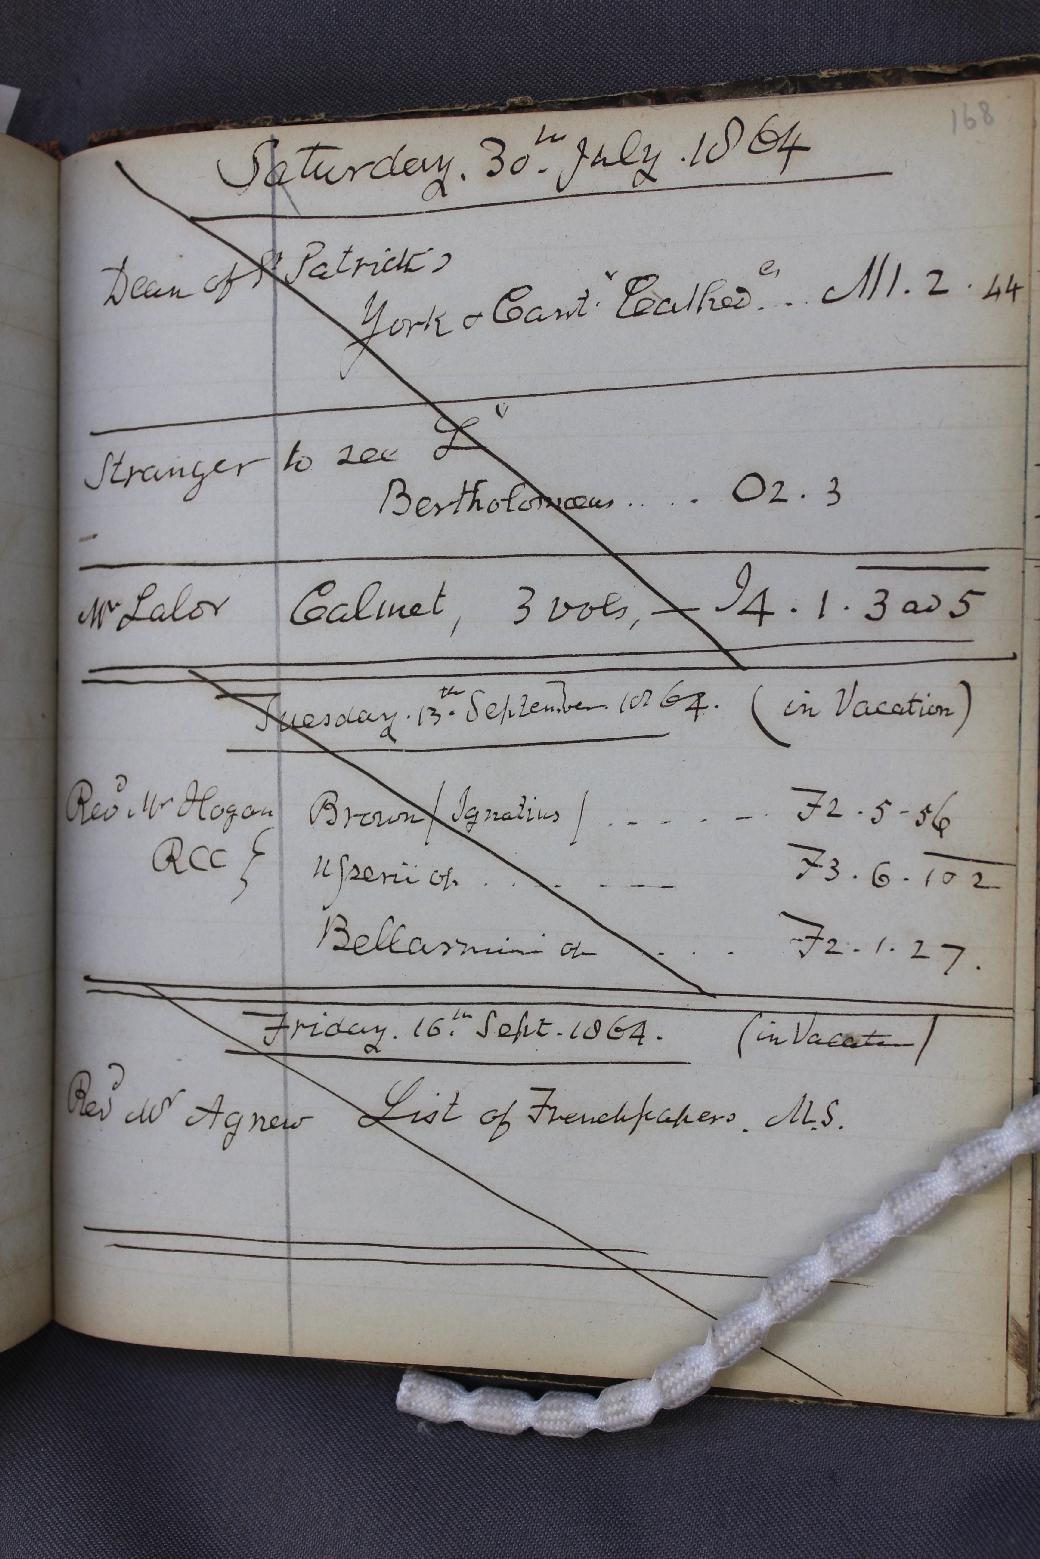 168
Saturday. 30th July. 1864
Dean of St Patrick's
York & Cant. Cathed. .. M1. 2. 44
Stranger to see L
Bertholomæus .... O2. 3
Mr Lalor Calmet, 3 vols, — I4. 1. 3 ad 5
Tuesday. 13th September 1864. (in Vacation)
Revd Mr Hogan Brown / Ignatius / ..... F2. 5 - 56
RCC } Usserii op. ..... F3. 6. 102
Bellarmini op ... F2. 1. 27.
Friday. 16th Sept. 1864. (in Vacation)
Revd Mr Agnew List of French papers. M.S.